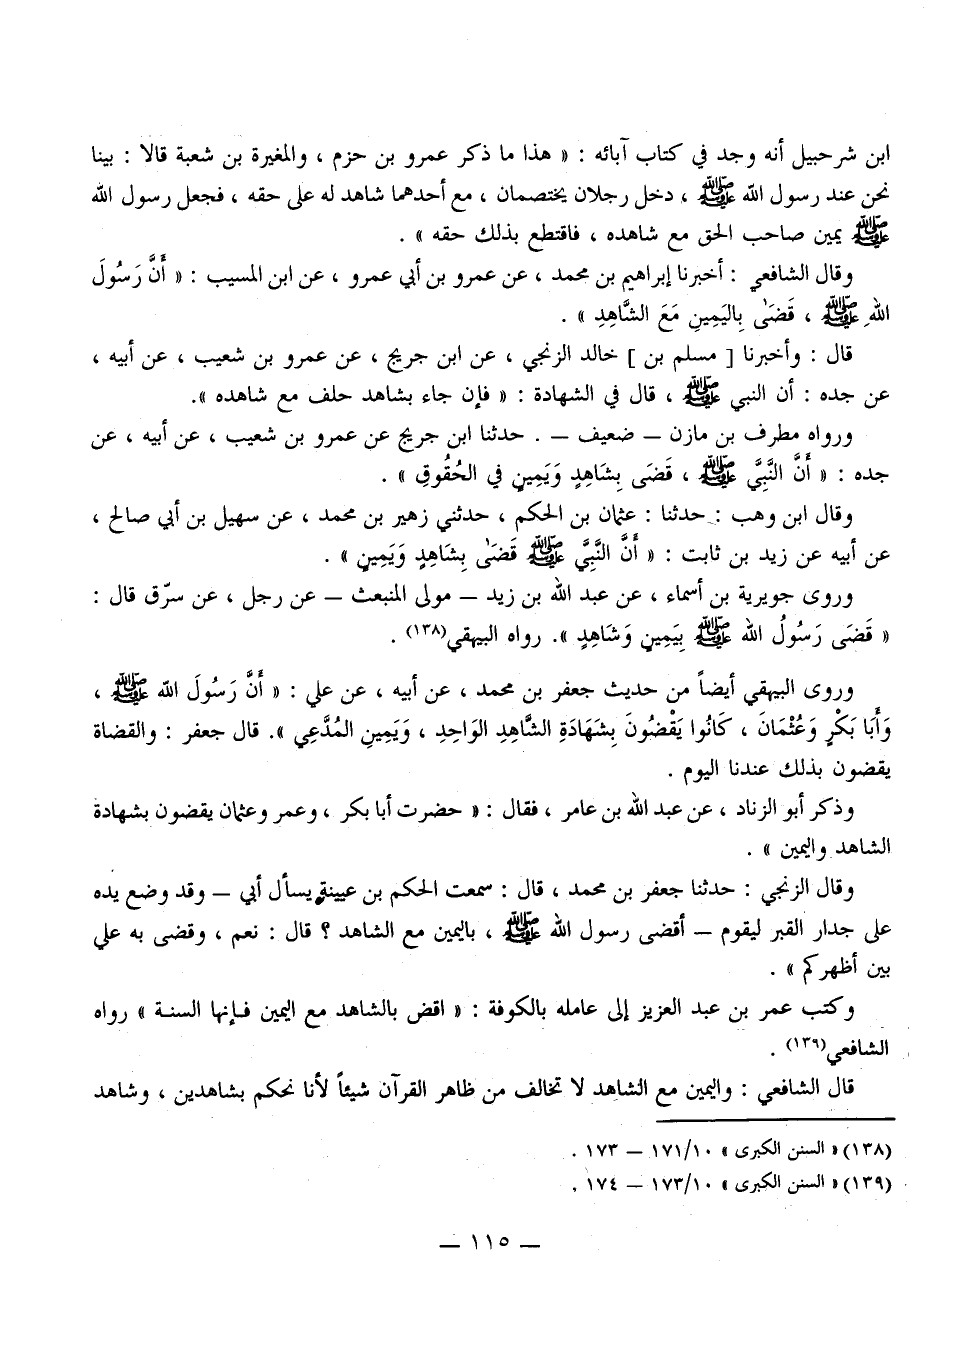 ابن شرحبيل أنه وجد في كتاب آبائه : « هذا ما ذكر عمرو بن حزم ، والمغيرة بن شعبة قالا : بينا
نحن عند رسول الله ﷺ ، دخل رجلان يختصمان ، مع أحدهما شاهد له على حقه ، فجعل رسول الله
ﷺ يمين صاحب الحق مع شاهده ، فاقتطع بذلك حقه » .
وقال الشافعي : أخبرنا إبراهيم بن محمد ، عن عمرو بن أبي عمرو ، عن ابن المسيب : « أَنَّ رَسُولَ
اللهِ ﷺ ، قَضَىٰ بِاليَمِينِ مَعَ الشَّاهِدِ » .
قال : وأخبرنا [ مسلم بن ] خالد الزنجي ، عن ابن جريج ، عن عمرو بن شعيب ، عن أبيه ،
عن جده : أن النبي ﷺ ، قال في الشهادة : « فإن جاء بشاهد حلف مع شاهده ».
ورواه مطرف بن مازن – ضعيف – . حدثنا ابن جريج عن عمرو بن شعيب ، عن أبيه ، عن
جده : « أَنَّ النَّبِيَّ ﷺ ، قَضَى بِشَاهِدٍ وَيَمِينٍ في الحُقُوقِ » .
وقال ابن وهب : حدثنا : عثمان بن الحكم ، حدثني زهير بن محمد ، عن سهيل بن أبي صالح ،
عن أبيه عن زيد بن ثابت : « أَنَّ النَّبِيَّ ﷺ قَضَىٰ بِشَاهِدٍ وَيَمِينٍ » .
وروى جويرية بن أسماء ، عن عبد الله بن زيد – مولى المنبعث – عن رجل ، عن سرّق قال :
« قَضَى رَسُولُ الله ﷺ بِيَمِينٍ وَشَاهِدٍ ». رواه البيهقي(١٣٨) .
وروى البيهقي أيضاً من حديث جعفر بن محمد ، عن أبيه ، عن علي : « أَنَّ رَسُولَ الله ﷺ ،
وَأَبَا بَكْرٍ وَعُثْمَانَ ، كَانُوا يَقْضُونَ بِشَهَادَةِ الشَّاهِدِ الوَاحِدِ ، وَيَمِينِ المُدَّعِي ». قال جعفر : والقضاة
يقضون بذلك عندنا اليوم .
وذكر أبو الزناد ، عن عبد الله بن عامر ، فقال : « حضرت أبا بكر ، وعمر وعثمان يقضون بشهادة
الشاهد واليمين » .
وقال الزنجي : حدثنا جعفر بن محمد ، قال : سمعت الحكم بن عيينة يسأل أبي – وقد وضع يده
على جدار القبر ليقوم – أقضى رسول الله ﷺ ، باليمين مع الشاهد ؟ قال : نعم ، وقضى به علي
بين أظهركم » .
وكتب عمر بن عبد العزيز إلى عامله بالكوفة : « اقض بالشاهد مع اليمين فإنها السنة » رواه
الشافعي(١٣٩) .
قال الشافعي : واليمين مع الشاهد لا تخالف من ظاهر القرآن شيئاً لأنا نحكم بشاهدين ، وشاهد
(١٣٨) « السنن الكبرى » ١٧١/١٠ – ١٧٣ .
(١٣٩) « السنن الكبرى » ١٧٣/١٠ – ١٧٤ .
– ١١٥ –